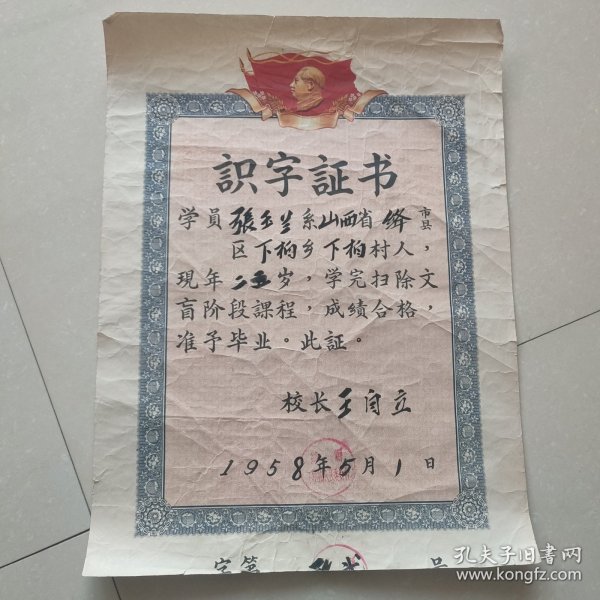 識字証书
学員張玉兰系山西省絳市县
区下柏乡下柏村人，
現年二五岁，学完扫除文
盲阶段課程，成績合格，
准予毕业。此証。
校长王自立
1958年5月1日
字第
号
孔夫子旧书网
www.kongfz.com